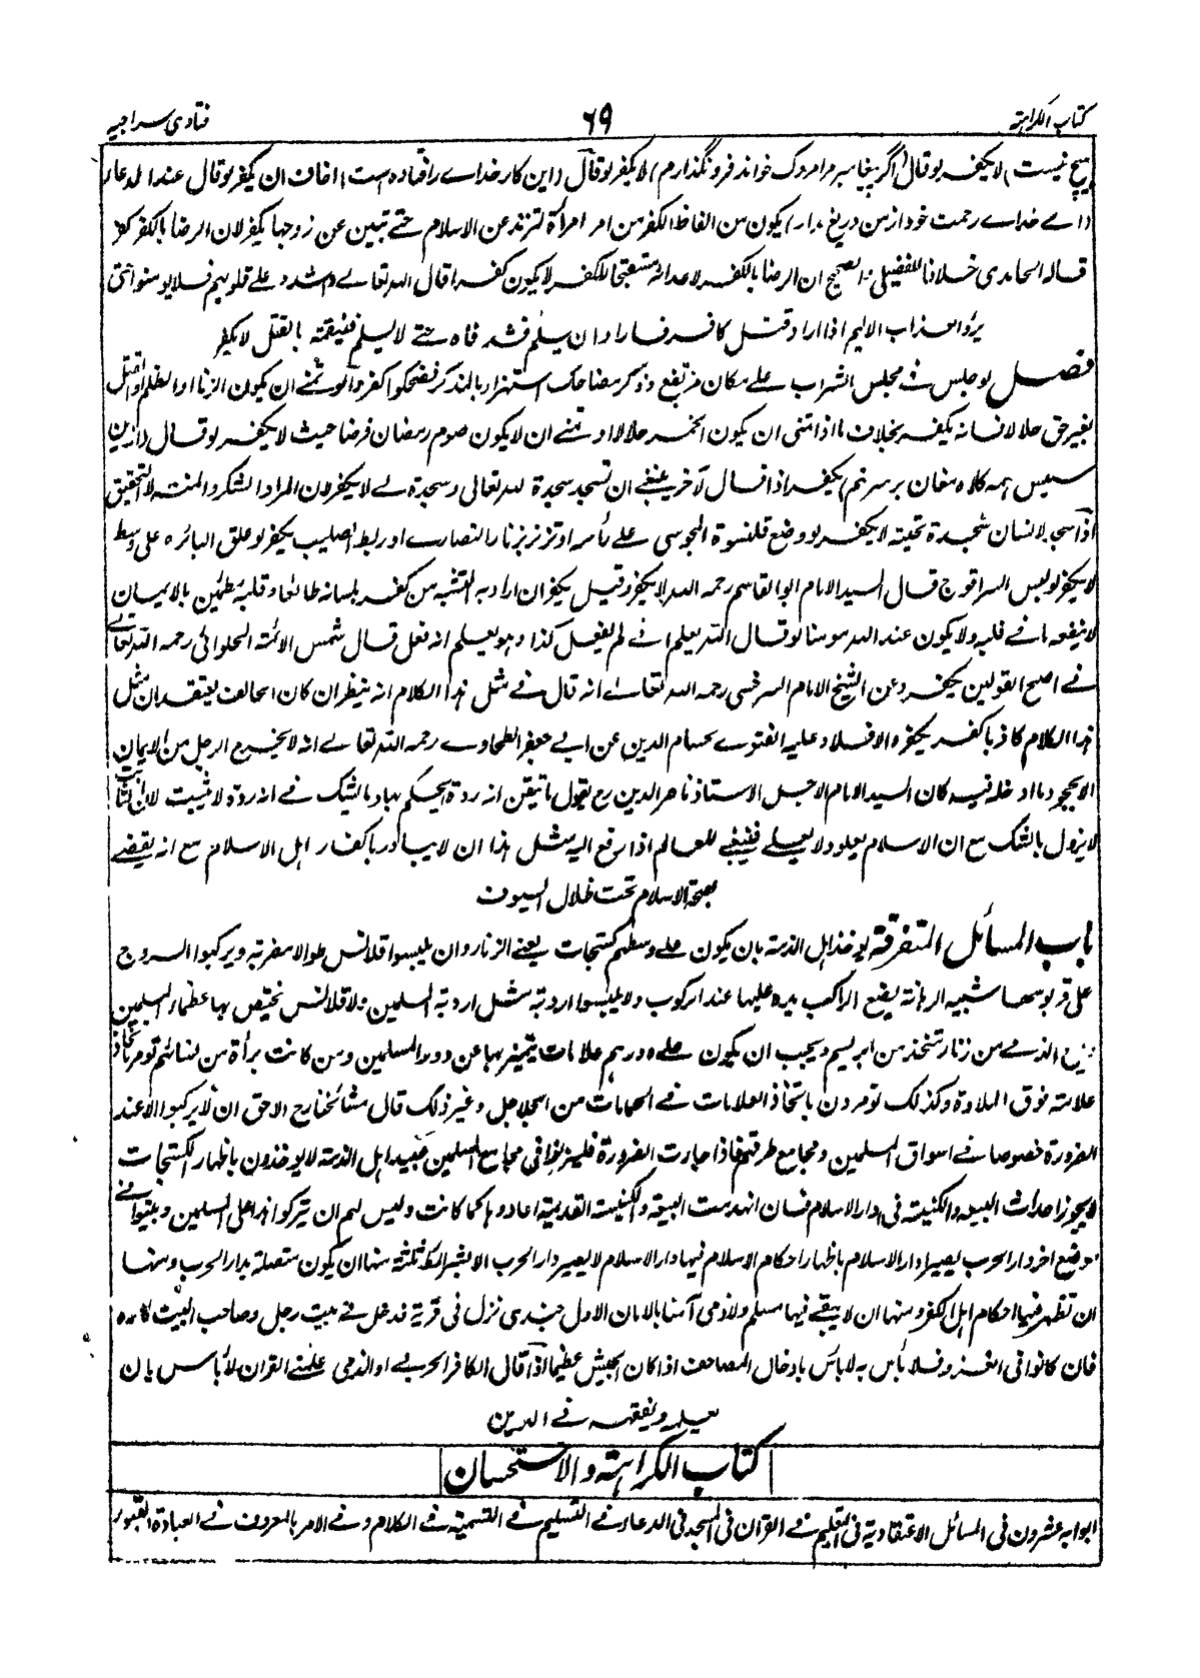 كتاب الكراهة
٦٩
فتاوى سراجيه
هيچ نيست) لا يكفر لو قال (اگر پيغامبر مرا مروك خواند فرو نگذارم) لا يكفر لو قال (اين كار خداے را افتاده است) اخاف ان يكفر لو قال عند الدعاء
(اے خداے رحمت خود از من دريغ مدار) يكون من الفاظ الكفر من امر امرأة لترتد عن الاسلام حتے تبين عن زوجها يكفر لان الرضا بالكفر كفر
قاله الحامدى خلافا للفضيلى والصحيح ان الرضا بالكفر لاعدائه مستقبحا للكفر لا يكون كفرا قال الله تعالے واشدد علے قلوبهم فلا يومنوا حتى
يروا العذاب الاليم اذا اراد قتل كافر فاراد ان يسلم فشد فاه حتے لا يسلم فيقتله بالقتل لا يكفر
فصل لو جلس فے مجلس الشراب علے مكان مرتفع وذكر مضاحك استهزاء بالمذكر فضحكوا كفروا لو تمنے ان يكون الزنا او الظلم او القتل
بغير حق حلالا فانه يكفر بخلاف ما اذا تمنى ان يكون الخمر حلالا او تمنے ان لا يكون صوم رمضان فرضا حيث لا يكفر لو قال (ازين
سپس همه كلاه مغان بر سر نهم) يكفر اذا قال لآخر ينبغے ان تسجد سجدة لله تعالى وسجدة لے لا يكفر لان المراد الشكر والمنة لا التحقيق
اذا سجد لانسان سجدة تحية لا يكفر لو وضع قلنسوة المجوسى علے رأسه او تزنر بزنار النصارے او ربط الصليب يكفر لو علق البائره على وسط
لا يكفر لو لبس السراقوج قال السيد الامام ابو القاسم رحمه الله لا يكفر وقيل يكفر ان اراد به التشبه من كفر بلسانه طائعا وقلبه مطمئن بالايمان
لا ينفعه ما فے قلبه ولا يكون عند الله مومنا لو قال الله يعلم انے لم افعل كذا وهو يعلم انه فعل قال شمس الائمة الحلوائى رحمه الله تعالے
فے اصح القولين يكفر وعن الشيخ الامام السرخسى رحمه الله تعالے انه قال فے مثل هذا الكلام انه ينظر ان كان الحالف يعتقد ان مثل
هذا الكلام كاذبا كفر يكفر والا فلا وعليه الفتوے حسام الدين عن ابے جعفر الطحاوے رحمه الله تعالے انه لا يخرج الرجل من الايمان
الا بجحود ما ادخله فيه كان السيد الامام الاجل الاستاذ ناصر الدين رح يقول ما تيقن انه ردة يحكم بها وما يشك فے انه ردة لا يثبت لان الثابت
لا يزول بالشك مع ان الاسلام يعلو ولا يعلے فينبغے للعالم اذا رفع اليه مثل هذا ان لا يبادر باكفار اهل الاسلام مع انه يقضے
بصحة الاسلام تحت ظلال السيوف
باب المسائل المتفرقة يوخذ اهل الذمة بان يكون علے وسطهم كستيجات يعنے الزنار وان يلبسوا قلانس طوالا مضربة ويركبوا السروج
على قربوسها شبيه الرمانة يضع الراكب يده عليها عند الركوب ولا يلبسوا اردية مثل اردية المسلمين ولا قلانس يختص بها عظماء المسلمين
ويمنع الذمے من زنار يتخذ من ابريسم ويجب ان يكون علے دورهم علامات يتميز بها عن دور المسلمين ومن كانت برأة من نسائهم تومر باتخاذ
علامة فوق الملاءة وكذلك تومرون باتخاذ العلامات فے الحمامات من الجلاجل وغير ذلك قال مشائخنا رح الاحق ان لا يركبوا الا عند
الضرورة خصوصا فے اسواق المسلمين ومجامع طرقهم فاذا جاءت الضرورة فلينزلوا فى مجامع المسلمين عبيد اهل الذمة لا يوخذون باظهار الكستيجات
لا يجوز احداث البيعة والكنيسة فى دار الاسلام فان انهدمت البيعة والكنيسة القديمة اعادوها كما كانت وليس لهم ان يتركوا هذا على المسلمين ويبنوا فے
موضع اخر دار الحرب يصير دار الاسلام باظهار احكام الاسلام فيها دار الاسلام لا يصير دار الحرب الا بشرائط ثلثة منها ان يكون متصلة بدار الحرب ومنها
ان تظهر فيها احكام اهل الكفر ومنها ان لا يبقے فيها مسلم ولا ذمى آمنا بالامان الاول جندى نزل فى قرية فدخل فے بيت رجل وصاحب البيت كاره
فان كانوا فى الغزو فلا بأس به لا بأس بادخال المصاحف اذا كان الجيش عظيما اذا قال الكافر الحربے او الذمى علمنے القران لا بأس بان
يعلمه ويفقهه فے الدين
كتاب الكراهة والاستحسان
ابوابه عشرون فى المسائل الاعتقادية فى التعليم فے القران فى المسجد فى الدعاء فے التسليم فے التسمية فے الكلام وفے الامر بالمعروف فے العبادة القبور